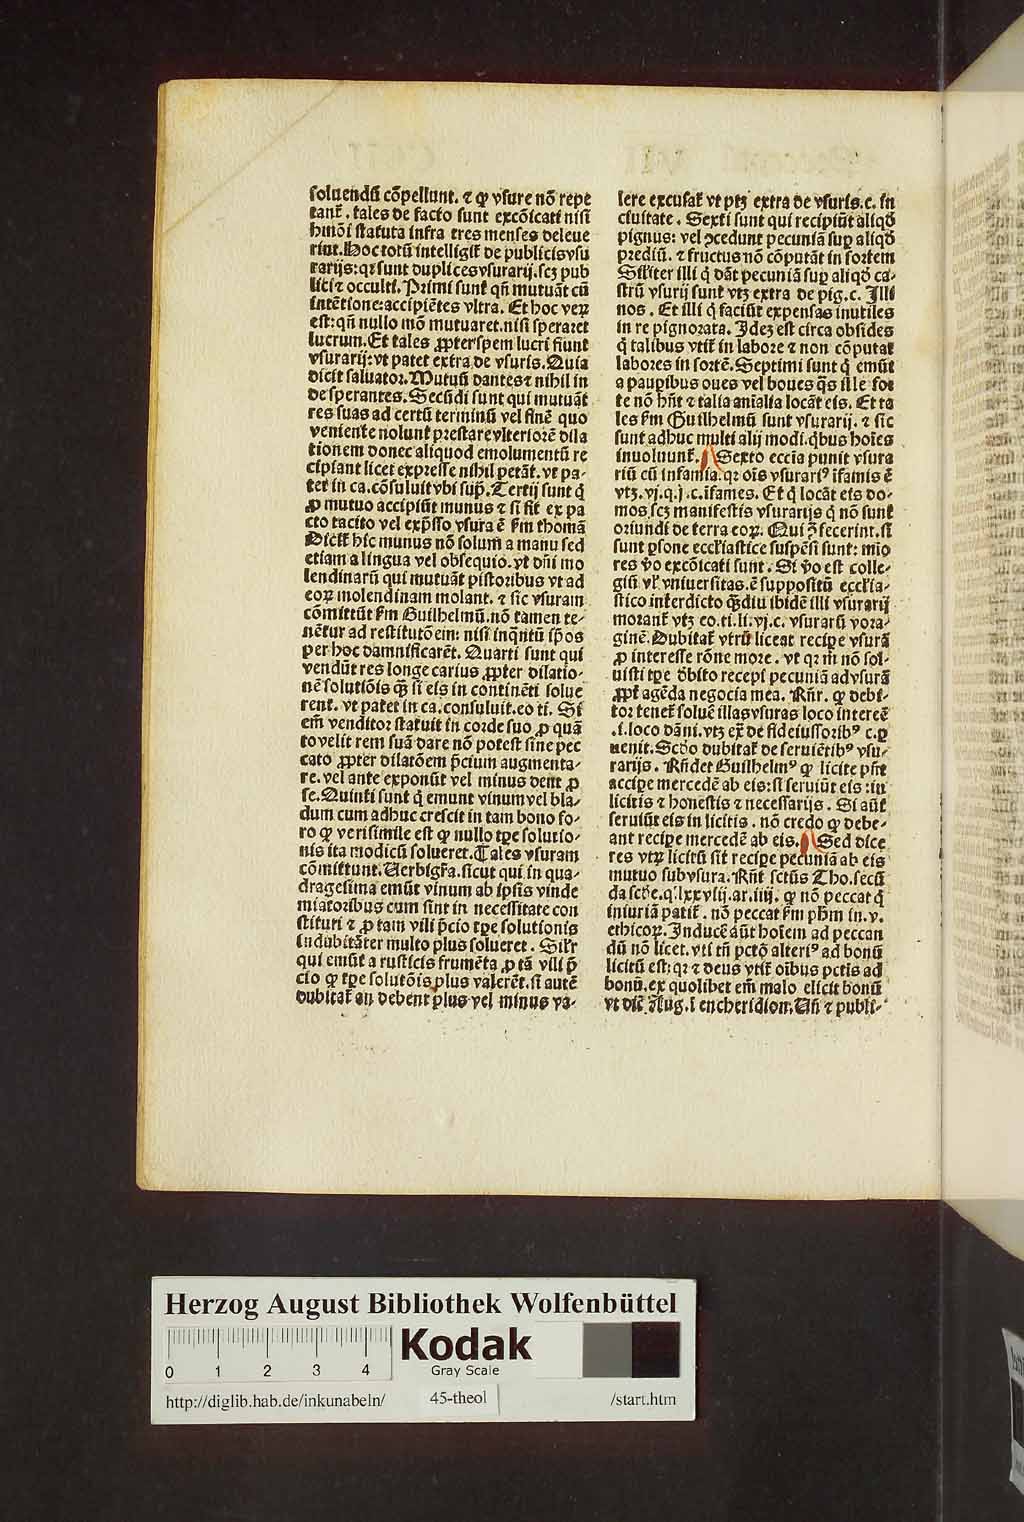 soluendū cōpellunt. ⁊ ꝙ vsure nō repe
tant̄. tales de facto sunt excōicati nisi
hmōi statuta infra tres menses deleue
rint. Hoc totū intelligit̄ de publicis vsu
rarijs: qꝛ sunt duplices vsurarij. scꝫ pub
lici ⁊ occulti. Primi sunt qn̄ mutuāt cū
intētione: accipiētes vltra. Et hoc veꝝ
est: qn̄ nullo mō mutuaret. nisi speraret
lucrum. Et tales ꝓpter spem lucri fiunt
vsurarij: vt patet extra de vsuris. Quia
dicit saluator. Mutuū dantes ⁊ nihil in
de sperantes. Secūdi sunt qui mutuāt
res suas ad certū terminū vel finē quo
veniente nolunt prestare vlteriorē dila
tionem donec aliquod emolumentū re
cipiant licet expresse nihil petāt. vt pa-
tet in ca. cōsuluit vbi sup̄. Tertij sunt q̄
ꝓ mutuo accipiūt munus ⁊ si fit ex pa
cto tacito vel exp̄sso vsura ē s̄m thomā
Dicit̄ hic munus nō solum a manu sed
etiam a lingua vel obsequio. vt dn̄i mo
lendinarū qui mutuāt pistoribus vt ad
eoꝝ molendinam molant. ⁊ sic vsuram
cōmittūt s̄m Guilhelmū. nō tamen te-
nētur ad restitutōem: nisi inq̄ntū ip̄os
per hoc damnificarēt. Quarti sunt qui
vendūt res longe carius ꝓpter dilatio-
nē solutiōis q̄ꝫ si eis in continēti solue
rent. vt patet in ca. consuluit. eo ti. Si
em̄ venditor statuit in corde suo ꝓ quā
to velit rem suā dare nō potest sine pec
cato ꝓpter dilatōem p̄cium augmenta-
re. vel ante exponūt vel minus dent ꝓ
se. Quinti sunt q̄ emunt vinum vel bla-
dum cum adhuc crescit in tam bono fo-
ro ꝙ verisimile est ꝙ nullo tꝑe solutio-
nis ita modicū solueret. Tales vsuram
cōmittunt. Uerbigr̄a. sicut qui in qua-
dragesima emūt vinum ab ipsis vinde
miatoribus cum sint in necessitate con
stituti ⁊ ꝓ tam vili p̄cio tꝑe solutionis
indubitāter multo plus solueret. Sil̄r
qui emūt a rusticis frumēta ꝓ tā vili p̄
cio ꝙ tꝑe solutōis plus valerēt. si autē
dubitat̄ an debent plus vel minus va-
lere excusat̄ vt ptꝫ extra de vsuris. c. in
ciuitate. Sexti sunt qui recipiūt aliqd̄
pignus: vel ꝯcedunt pecuniā suꝑ aliqd̄
prediū. ⁊ fructus nō cōputāt in sortem
Sil̄iter illi q̄ dāt pecuniā suꝑ aliqd̄ ca-
strū vsurij sunt vtꝫ extra de pig. c. Illi
nos. Et illi q̄ faciūt expensas inutiles
in re pignorata. Idem est circa obsides
q̄ talibus vtit̄ in labore ⁊ non cōputat
labores in sortē. Septimi sunt q̄ emūt
a pauꝑibus oues vel boues q̄s ille for
te nō hn̄t ⁊ talia aīalia locāt eis. Et ta
les s̄m Guilhelmū sunt vsurarij. ⁊ sic
sunt adhuc multi alij modi. qͥbus hoīes
inuoluunt̄. Sexto eccīa punit vsura
riū cū infamia. qꝛ oīs vsurariꝰ īfamis ē
vtꝫ. vj. q. j. c. īfames. Et q̄ locāt eis do-
mos scꝫ manifestis vsurarijs q̄ nō sunt
oriundi de terra eoꝝ. Qui ꝫ fecerint. si
sunt ꝑsone eccl̄iastice suspēsi sunt: mīo
res v̄o excōicati sunt. Si v̄o est colle-
giū vl̄ vniuersitas. ē suppositū eccl̄ia-
stico interdicto q̄ꝫdiu ibidē illi vsurarij
morant̄ vtꝫ eo. ti. li. vj. c. vsurarū vora-
ginē. Dubitat̄ vtrū liceat recipe vsurā
ꝓ interesse rōne more. vt qꝛ m̄ nō sol-
uisti tꝑe d̄bito recepi pecuniā ad vsurā
ꝓpt̄ agēda negocia mea. Rn̄r. ꝙ debi-
tor tenet̄ soluē illas vsuras loco intereē
.i. loco dāni. vtꝫ ex̄ de fideiussoribꝰ c. ꝑ
uenit. Scd̄o dubitat̄ de seruiētibꝰ vsu-
rarijs. Rn̄det Guilhelmꝰ ꝙ licite pn̄t
accipe mercedē ab eis: si seruiūt eis: in
licitis ⁊ honestis ⁊ necessarijs. Si aūt
seruiūt eis in licitis. nō credo ꝙ debe-
ant recipe mercedē ab eis. Sed dice
res vtꝝ licitū sit recipe pecuniā ab eis
mutuo sub vsura. Rn̄t sctūs Tho. secū
da scd̄e. q. lxxviij. ar. iiij. ꝙ nō peccat q̄
iniuriā patit̄. nō peccat s̄m ph̄m in. v.
ethicoꝝ. Inducē aūt hoīem ad peccan
dū nō licet. vti tn̄ pctō alteriꝰ ad bonū
licitū est: qꝛ ⁊ deus vtit̄ oībus pctis ad
bonū. ex quolibet em̄ malo elicit bonū
vt dic̄ Aug. ī encheridion. Un̄ ⁊ publi-
Herzog August Bibliothek Wolfenbüttel
0 1 2 3 4
Kodak
Gray Scale
http://diglib.hab.de/inkunabeln/ 45-theol /start.htm